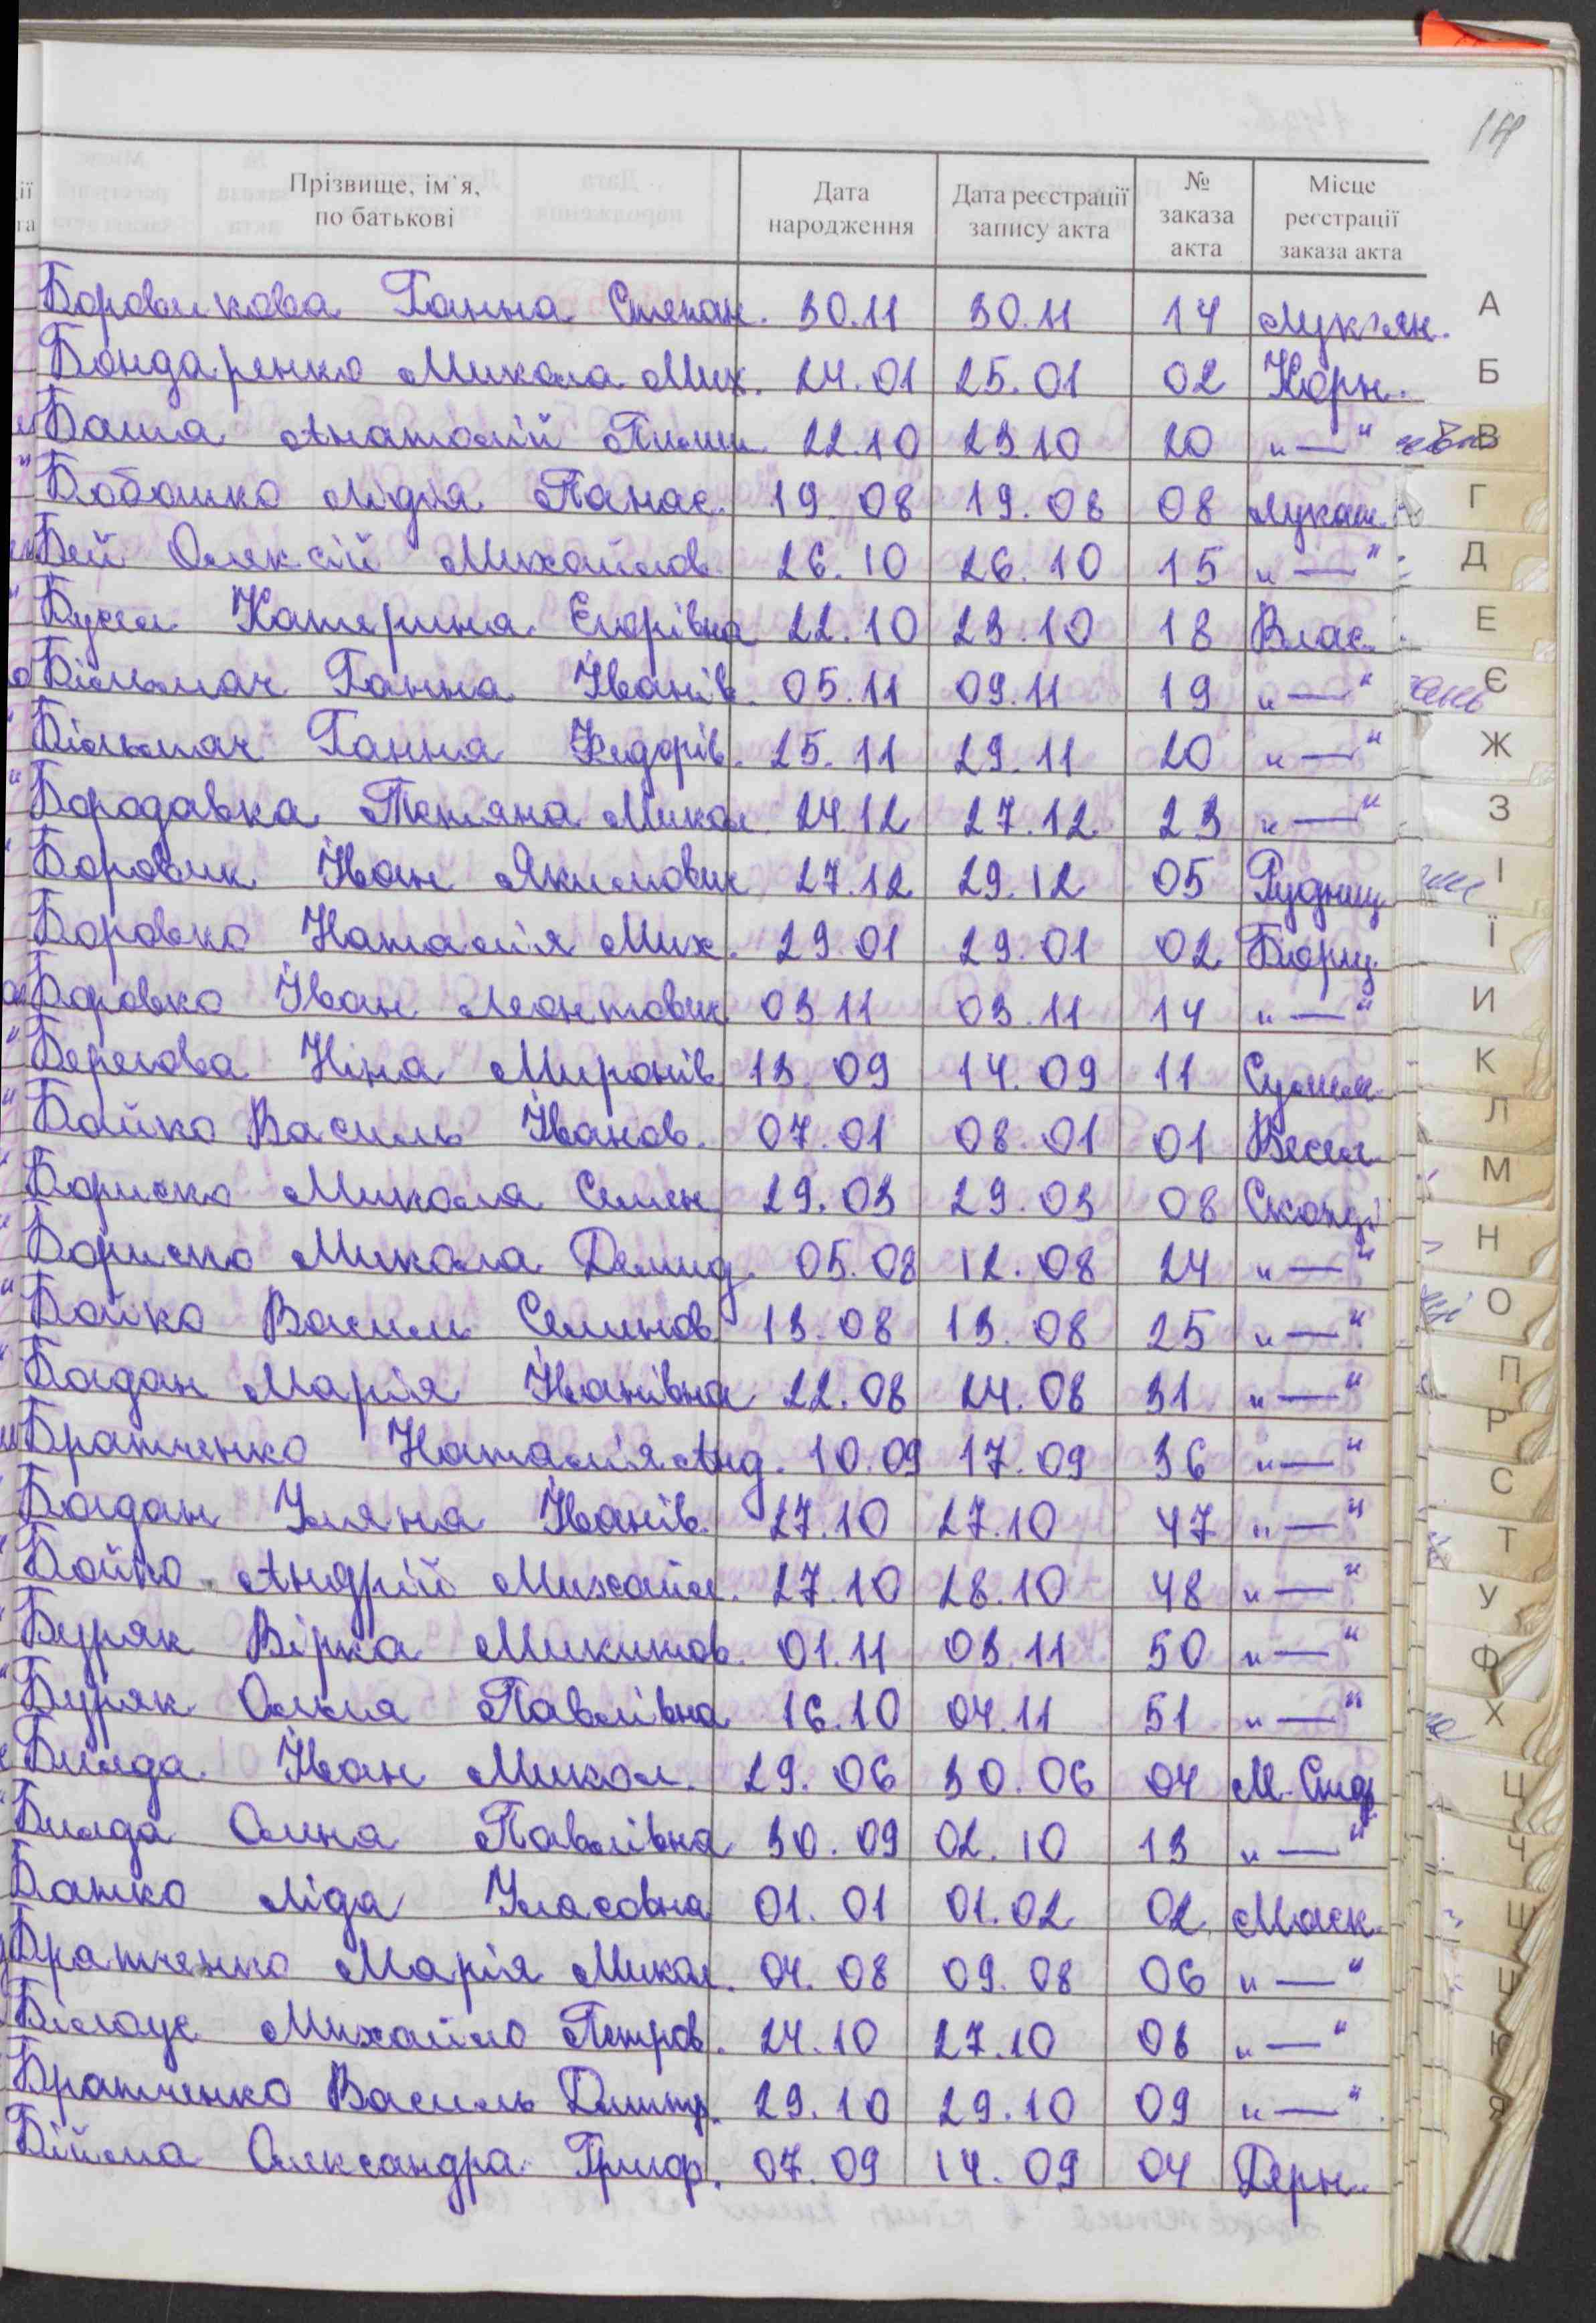 14
Прізвище, ім'я, по батькові Дата народження Дата реєстрації запису акта № заказа акта Місце реєстрації заказа акта
Боровикова Ганна Степан. 30.11 30.11 14 Лук'ян. А
Бондаренко Микола Мих. 24.01 25.01 02 Корн. Б
Баша Анатолій Пилип 22.10 23 10 20 „—“ В
Бобошко Лідія Панас. 19. 08 19. 08 08 Лукаш Г
Бей Олексій Михайлов. 26. 10 26. 10 15 „—“ Д
Бусел Катерина Єгорівна 22.10 23.10 18 Влас. Е
Більмач Ганна Іванів. 05.11 09.11 19 „—“ Є
Більмач Ганна Федорів. 25. 11 29. 11 20 „—“ Ж
Бородавка Тетяна Микол. 24.12 27.12 23 „—“ З
Боровик Іван Якимович 27.12 29.12 05 Рудниц І
Боровко Наталія Мих. 29.01 29.01 02 Борщ. Ї
Боровко Іван Леонтович 03 11 03.11 14 „—“ И
Берегова Ніна Миронів 13. 09 14. 09 11 Сулим К
Бойко Василь Іванов. 07.01 08.01 01 Весел Л
Бориско Микола Семен 29. 03 29. 03 08 Скопці М
Бориско Микола Демид. 05. 08 12. 08 24 „—“ Н
Бойко Василь Семенов 13. 08 13. 08 25 „—“ О
Богдан Марія Іванівна 22. 08 24. 08 31 „—“ П
Братченко Наталія Анд. 10.09 17.09 36 „—“ Р
Богдан Уляна Іванів. 27.10 27.10 47 „—“ С
Бойко Андрій Михайл. 27.10 28.10 48 „—“ Т
Буряк Вірка Микитов. 01.11 03.11 50 „—“ У
Буряк Ольга Павлівна 16.10 04.11 51 „—“ Ф
Билда Іван Микол. 29. 06 30. 06 04 М-Стар Х
Билда Олина Павлівна 30. 09 02. 10 13 „—“ Ц
Бажко Ліда Уласовна 01. 01 01.02 02 Маск. Ч
Братченко Марія Микол. 04. 08 09. 08 06 „—“ Ш
Білоус Михайло Петров. 24.10 27.10 08 „—“ Щ
Братченко Василь Дмитр. 29. 10 29.10 09 „—“ Ю
Бійма Олександра Григор. 07. 09 14. 09 04 Дерн. Я